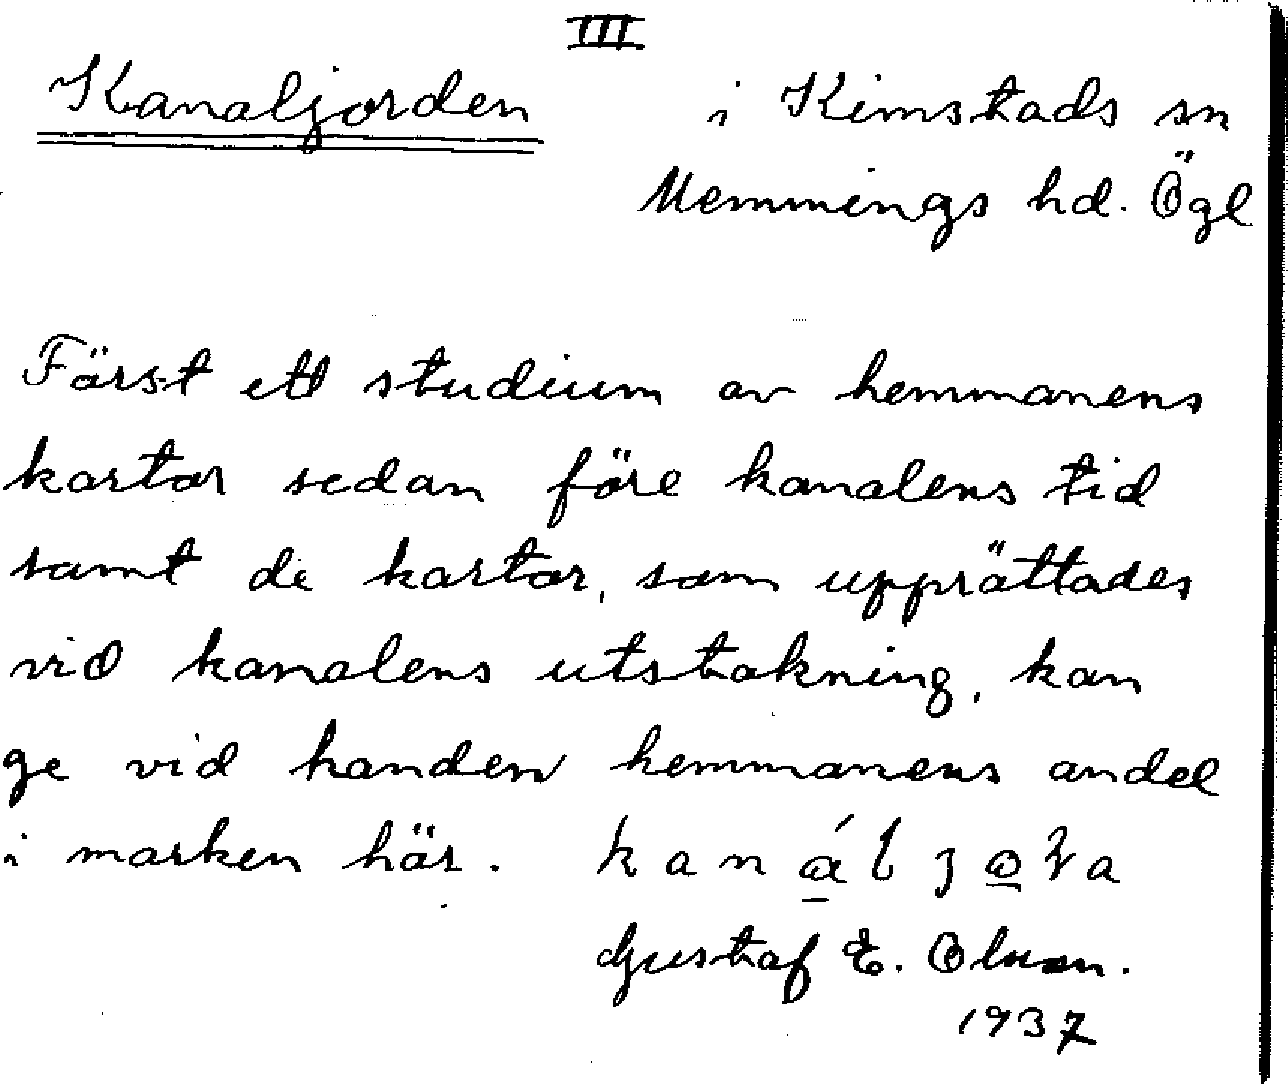 III
Kanaljorden i Kimstads sn
Memmings hd. Ögl
Först ett studium av hemmanens
kartor sedan före kanalens tid
samt de kartor, som upprättades
vid kanalens utstakning, kan
ge vid handen hemmanens andel
i marken här.
Gustaf E. Olsson.
1937